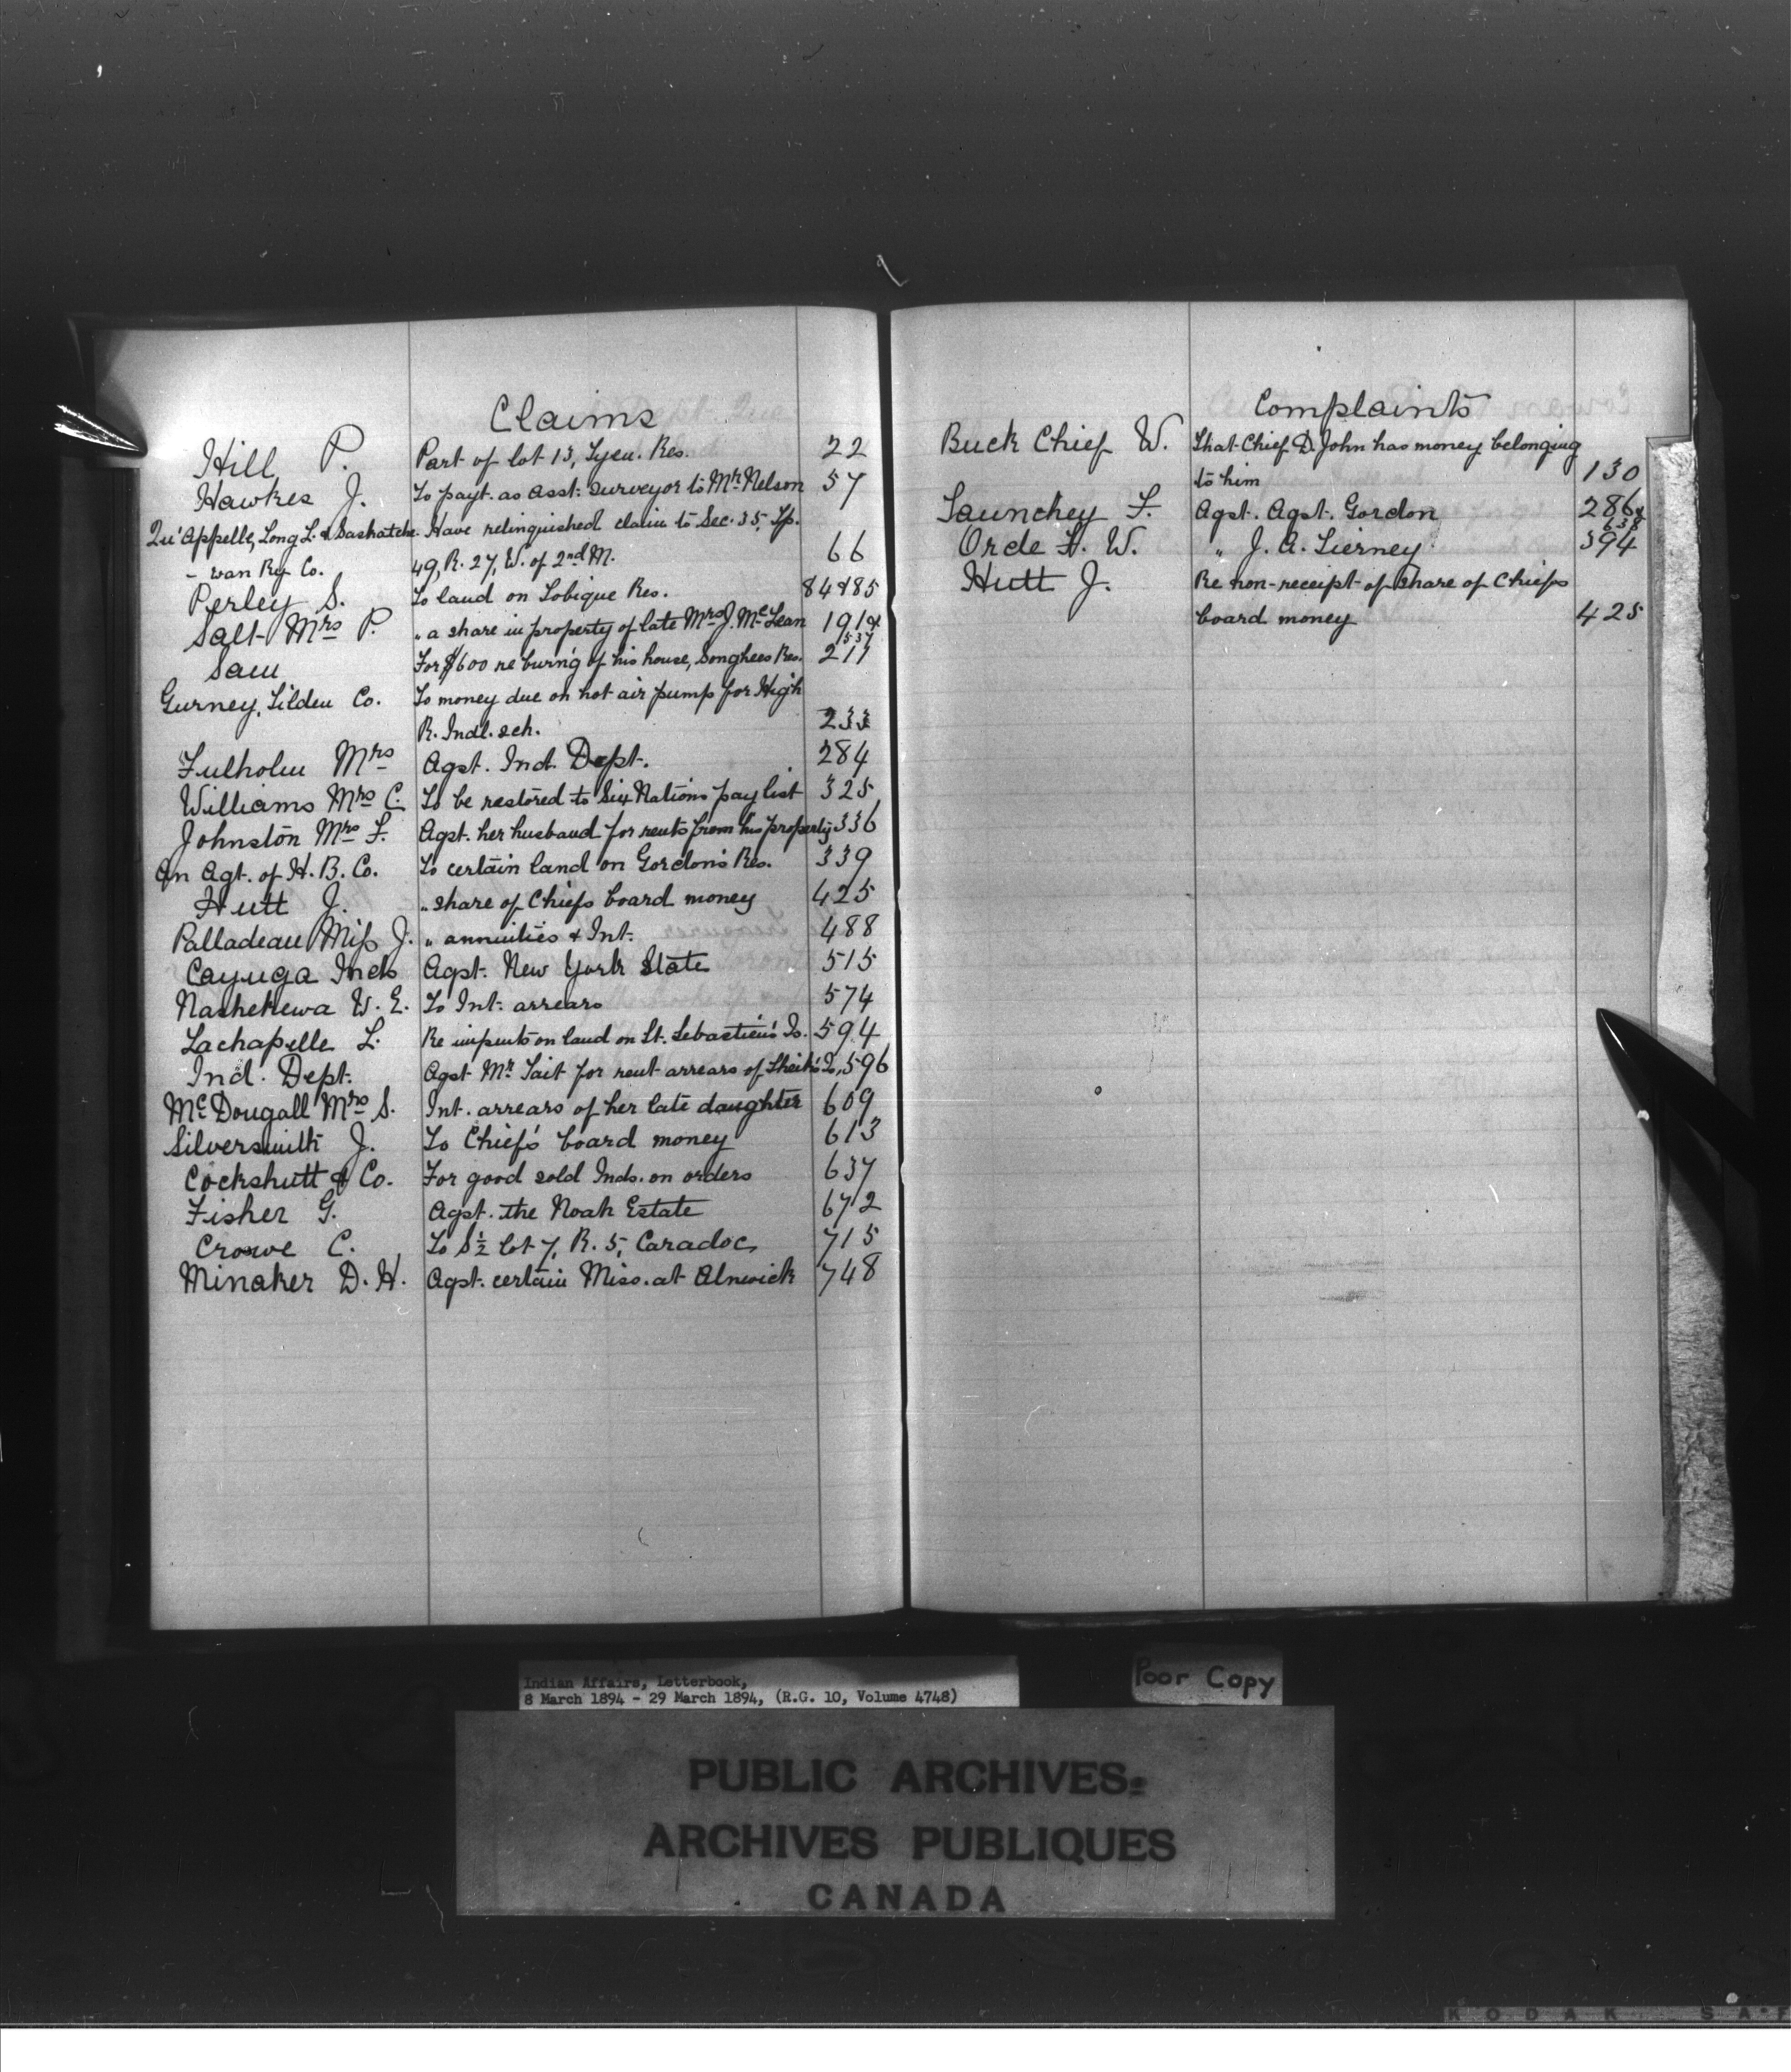 Claims
Hill P. Part of lot 13, Tyen. Res. 22
Hawkes J. To payt. as Asst. Surveyor to Mr. Nelson 57
Qu'Appelle, Long L. & Saskatche- Have relinquished claim to Sec. 35, Tp.
- wan Ry Co. 49, R. 27, W. of 2nd M. 66
Perley S. To land on Tobique Res. 84 & 85
Salt Mrs P. " a share in property of late Mrs J. McLean 191 & 537
Sam For $600 re burn'g of his house, Songhees Res. 217
Gurney, Tilden Co. To money due on hot air pump for High
R. Indl. sch. 233
Fulholm Mrs Agst. Ind. Dept. 284
Williams Mrs C. To be restored to Six Nations pay list 325
Johnston Mrs F. Agst. her husband for rents from his property 336
An Agt. of H. B. Co. To certain land on Gordon's Res. 339
Hutt J. " share of Chiefs board money 425
Palladeau Miss J. " annuities & Int. 488
Cayuga Inds Agst. New York State 515
Nashekewa W. E. To Int. arrears 574
Lachapelle L. Re impmts on land on St. Sebastien's Is. 594
Ind. Dept. Agst Mr. Tait for rent arrears of Sheik's Is. 596
McDougall Mrs S. Int. arrears of her late daughter 609
Silversmith J. To Chief's board money 613
Cockshutt & Co. For good sold Inds. on orders 637
Fisher G. Agst. the Noah Estate 672
Crowe C. To S½ lot 7, R. 5, Caradoc 715
Minaker D. H. Agst. certain Miss. at Alnwick 748
Complaints
Buck Chief W. That Chief D. John has money belonging
to him 130
Taunchey F. Agst. Agt. Gordon 286 & 638
Orde F. W. " J. A. Tierney 394
Hutt J. Re non-receipt of share of Chiefs
board money 425
Indian Affairs, Letterbook,
8 March 1894 - 29 March 1894, (R.G. 10, Volume 4748)
Poor Copy
PUBLIC ARCHIVES
ARCHIVES PUBLIQUES
CANADA
KODAK SAF